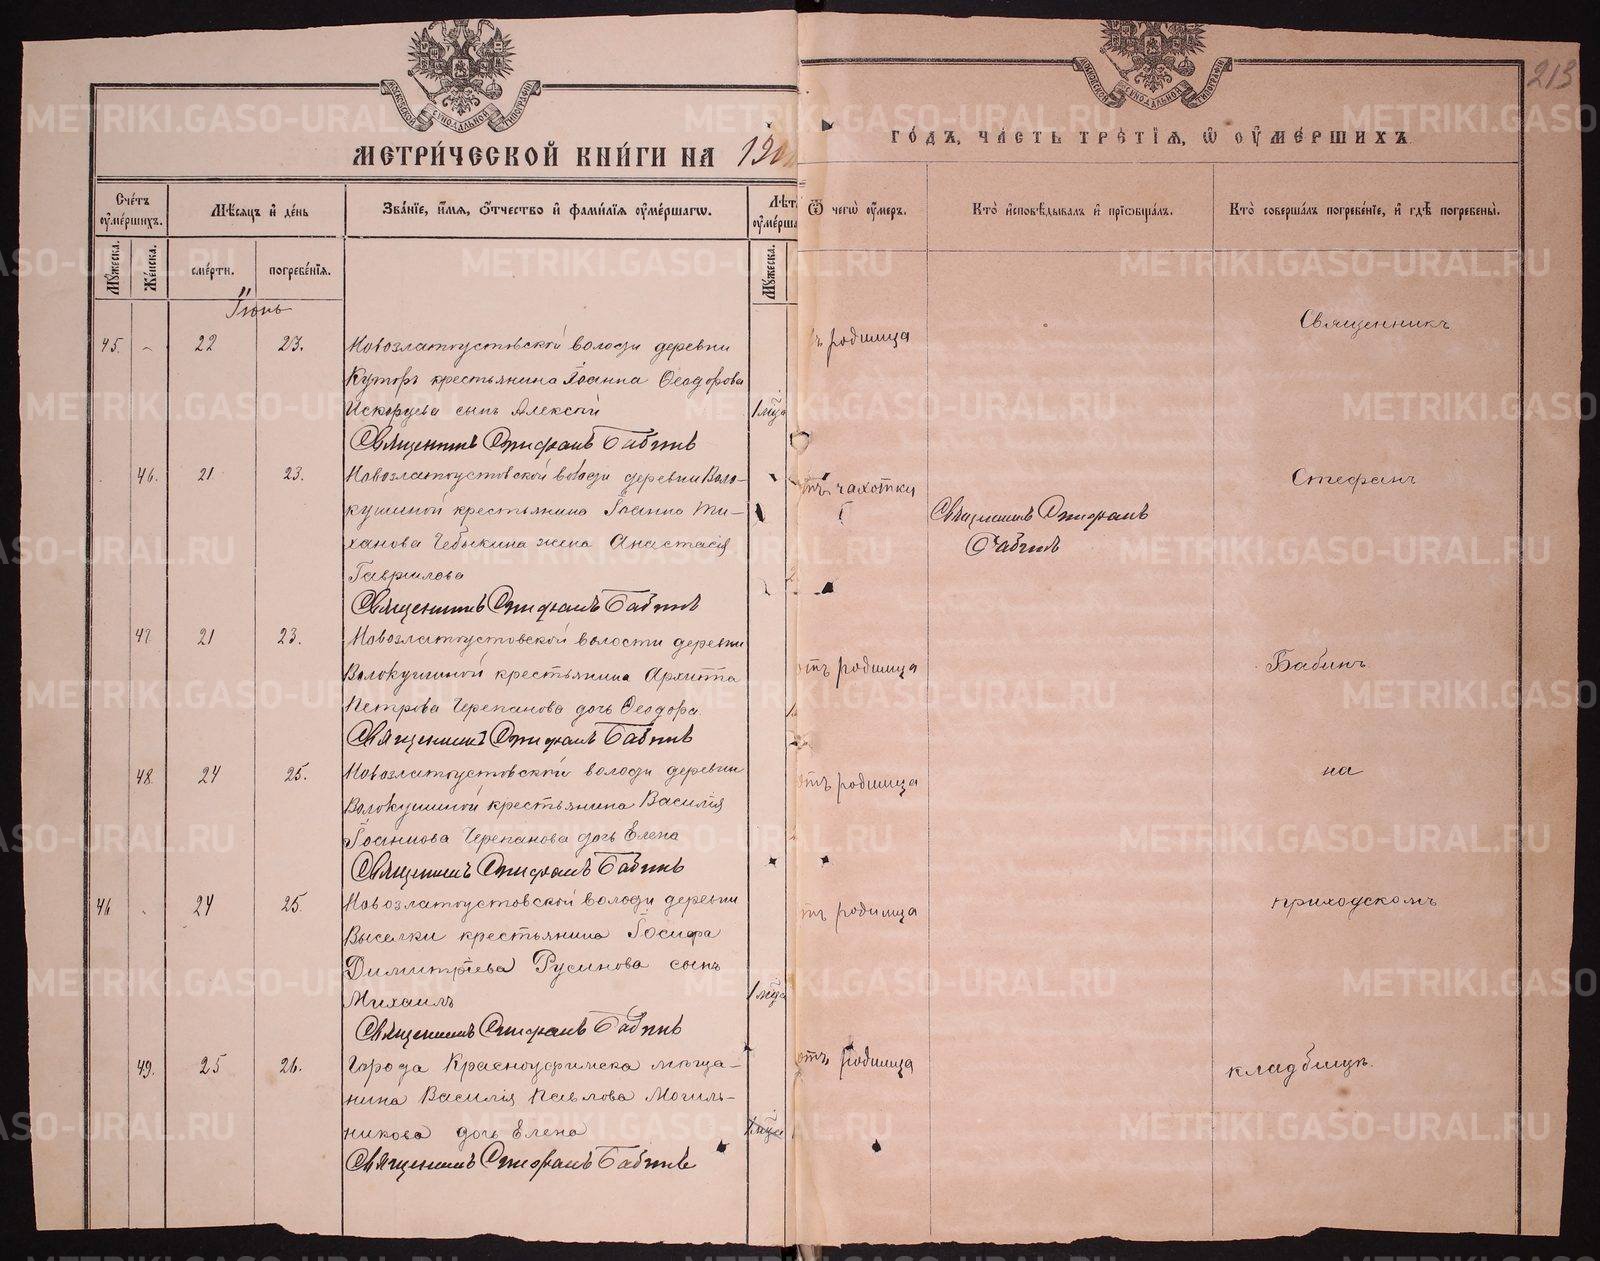 213
МЕТРИ́ЧЕСКОЙ КНИ́ГИ НА 190
ГО́ДЪ, ЧА́СТЬ ТРЕ́ТІѦ, Ѽ ОУ҆МЕ́РШИХЪ.
Сче́тъ оу҆ме́ршихъ.
Мѣ́сяцъ и҆ де́нь
Зва́нїе, и҆́мѧ, ѻ҆́тчество и҆ фами́лїѧ оу҆ме́ршагѡ.
Лѣт.
оу҆ме́рша
Ѿ чегѡ̀ оу҆́меръ.
Кто̀ и҆сповѣ́дывалъ и҆ прїѡбща́лъ.
Кто̀ соверша́лъ погребе́нїе, и҆ гдѣ̀ погребены̀.
Мꙋ́жеска.
Же́нска.
сме́рти.
погребе́нїѧ.
Мꙋ́жеска.
Іюнь
45. 22 23. Новозлатоустовской волости деревни
Куторъ крестьянина Іоанна Ѳеодорова
сынъ Алексѣй 1 мца
Священникъ Стефанъ Бабинъ
родимца
Священникъ
46. 21 23. Новозлатоустовской волости деревни Воло-
кушиной крестьянина Іоанна Ти-
ханова Чебыкина жена Анастасія
Гаврилова
Священникъ Стефанъ Бабинъ
отъ чахотки
Священникъ Стефанъ
Бабинъ
Стефанъ
47 21 23. Новозлатоустовской волости деревни
Волокушиной крестьянина Архиппа
Петрова Черепанова дочь Ѳеодора
Священникъ Стефанъ Бабинъ
отъ родимца
Бабинъ
48. 24 25. Новозлатоустовской волости деревни
Волокушиной крестьянина Василія
Іоаннова Черепанова дочь Елена
Священникъ Стефанъ Бабинъ
отъ родимца
на
46 24 25. Новозлатоустовской волости деревни
Выселки крестьянина Іосифа
Димитріева Русинова сынъ
Михаилъ 1 мца
Священникъ Стефанъ Бабинъ
отъ родимца
приходскомъ
49. 25 26. Города Красноуфимска мѣща-
нина Василія Павлова Могиль-
никова дочь Елена
Священникъ Стефанъ Бабинъ
отъ родимца
кладбищѣ.
METRIKI.GASO-URAL.RU